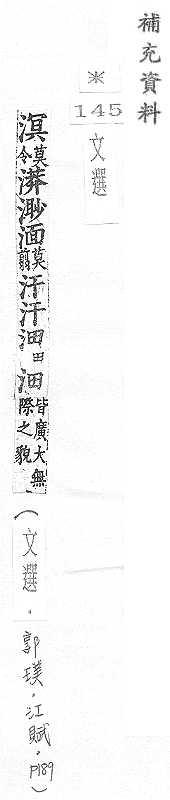 補充資料
※
145
文選
溟莫令漭渺湎莫翦汗汗沺田沺皆廣大無際之貌(文選.郭璞.江賦.P189)